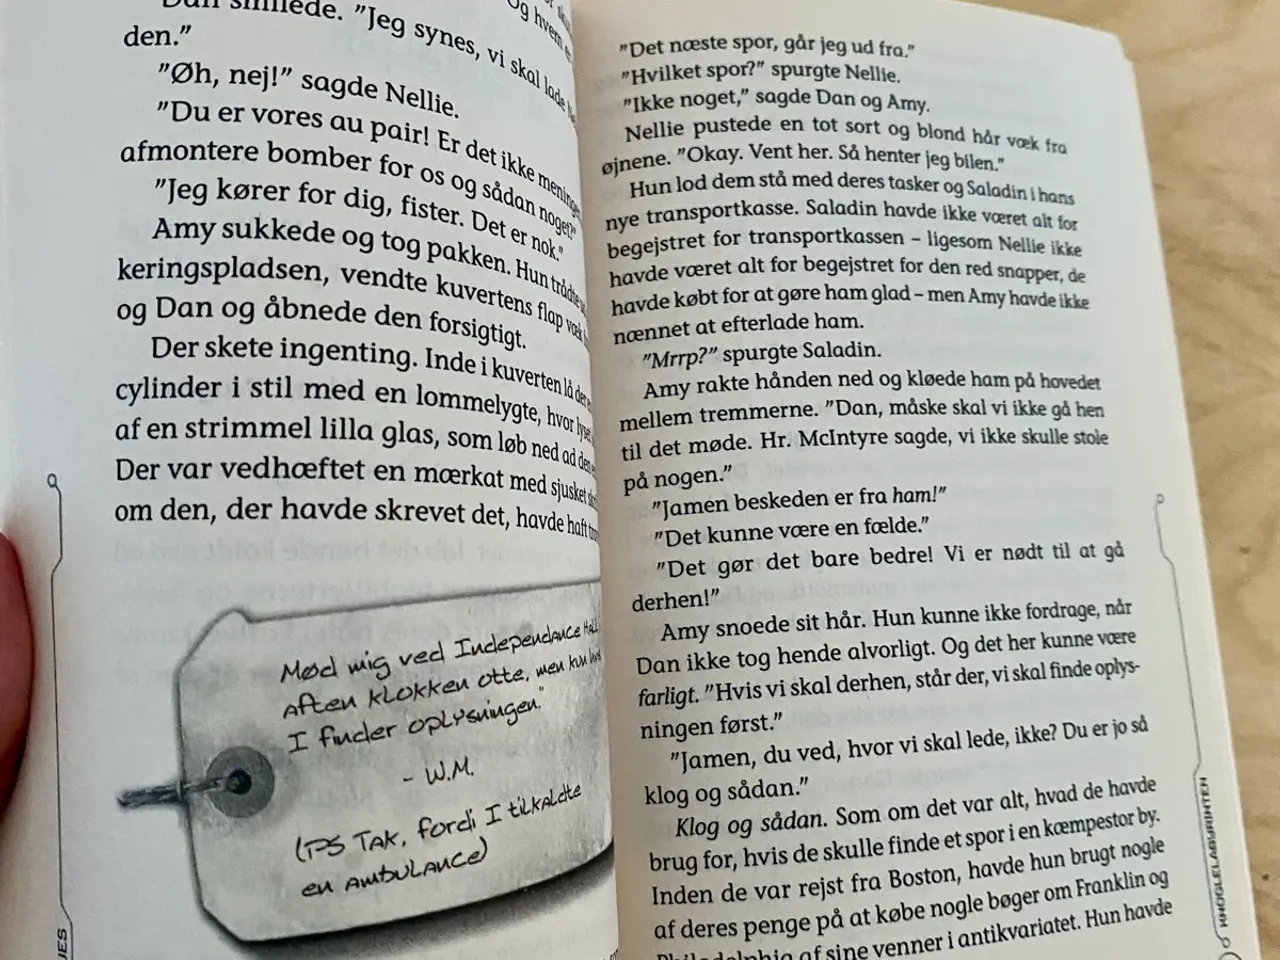 Dan smilede. ”Jeg synes, vi skal lade
den.”
”Øh, nej!” sagde Nellie.
”Du er vores au pair! Er det ikke
afmontere bomber for os og sådan noget?”
”Jeg kører for dig, fister. Det er nok.”
Amy sukkede og tog pakken. Hun trådte
keringspladsen, vendte kuvertens flap væk
og Dan og åbnede den forsigtigt.
Der skete ingenting. Inde i kuverten lå
cylinder i stil med en lommelygte, hvor
af en strimmel lilla glas, som løb ned ad
Der var vedhæftet en mærkat med sjusket
om den, der havde skrevet det, havde haft
Mød mig ved Independance
aften klokken otte, men kun
I finder oplysningen."
- W.M.
(PS Tak, fordi I tilkaldte
en ambulance)
Og hvem
”Det næste spor, går jeg ud fra.”
”Hvilket spor?” spurgte Nellie.
”Ikke noget,” sagde Dan og Amy.
Nellie pustede en tot sort og blond hår væk fra
øjnene. ”Okay. Vent her. Så henter jeg bilen.”
Hun lod dem stå med deres tasker og Saladin i hans
nye transportkasse. Saladin havde ikke været alt for
begejstret for transportkassen – ligesom Nellie ikke
havde været alt for begejstret for den red snapper, de
havde købt for at gøre ham glad – men Amy havde ikke
nænnet at efterlade ham.
”Mrrp?” spurgte Saladin.
Amy rakte hånden ned og kløede ham på hovedet
mellem tremmerne. ”Dan, måske skal vi ikke gå hen
til det møde. Hr. McIntyre sagde, vi ikke skulle stole
på nogen.”
”Jamen beskeden er fra ham!”
”Det kunne være en fælde.”
”Det gør det bare bedre! Vi er nødt til at gå
derhen!”
Amy snoede sit hår. Hun kunne ikke fordrage, når
Dan ikke tog hende alvorligt. Og det her kunne være
farligt. ”Hvis vi skal derhen, står der, vi skal finde oplys-
ningen først.”
”Jamen, du ved, hvor vi skal lede, ikke? Du er jo så
klog og sådan.”
Klog og sådan. Som om det var alt, hvad de havde
brug for, hvis de skulle finde et spor i en kæmpestor by.
Inden de var rejst fra Boston, havde hun brugt nogle
af deres penge på at købe nogle bøger om Franklin og
Philadelphia af sine venner i antikvariatet. Hun havde
KNOGLELABYRINTEN